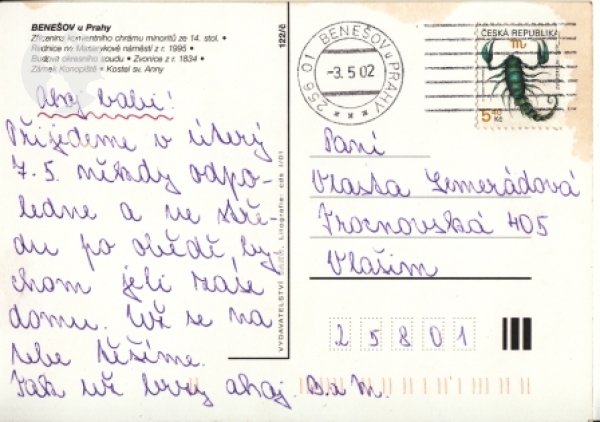 BENEŠOV u Prahy
Zřícenina konventního chrámu minoritů ze 14. stol. •
Radnice na Masarykově náměstí z r. 1995 •
Budova okresního soudu • Zvonice z r. 1834 •
Zámek Konopiště • Kostel sv. Anny
122/č
Ahoj babi!
Přijedeme v úterý
7.5. někdy odpo-
ledne a ve stře-
du po obědě by-
chom jeli zase
domu. Už se na
tebe těšíme.
Tak už brzy ahoj. D. a M.
VYDAVATELSTVÍ
Litografie: cds 1/01
256 01 BENEŠOV u PRAHY
-3.5.02
ČESKÁ REPUBLIKA
5,40
Kč
Paní
Vlasta Lemerádová
Trocnovská 405
Vlašim
25801